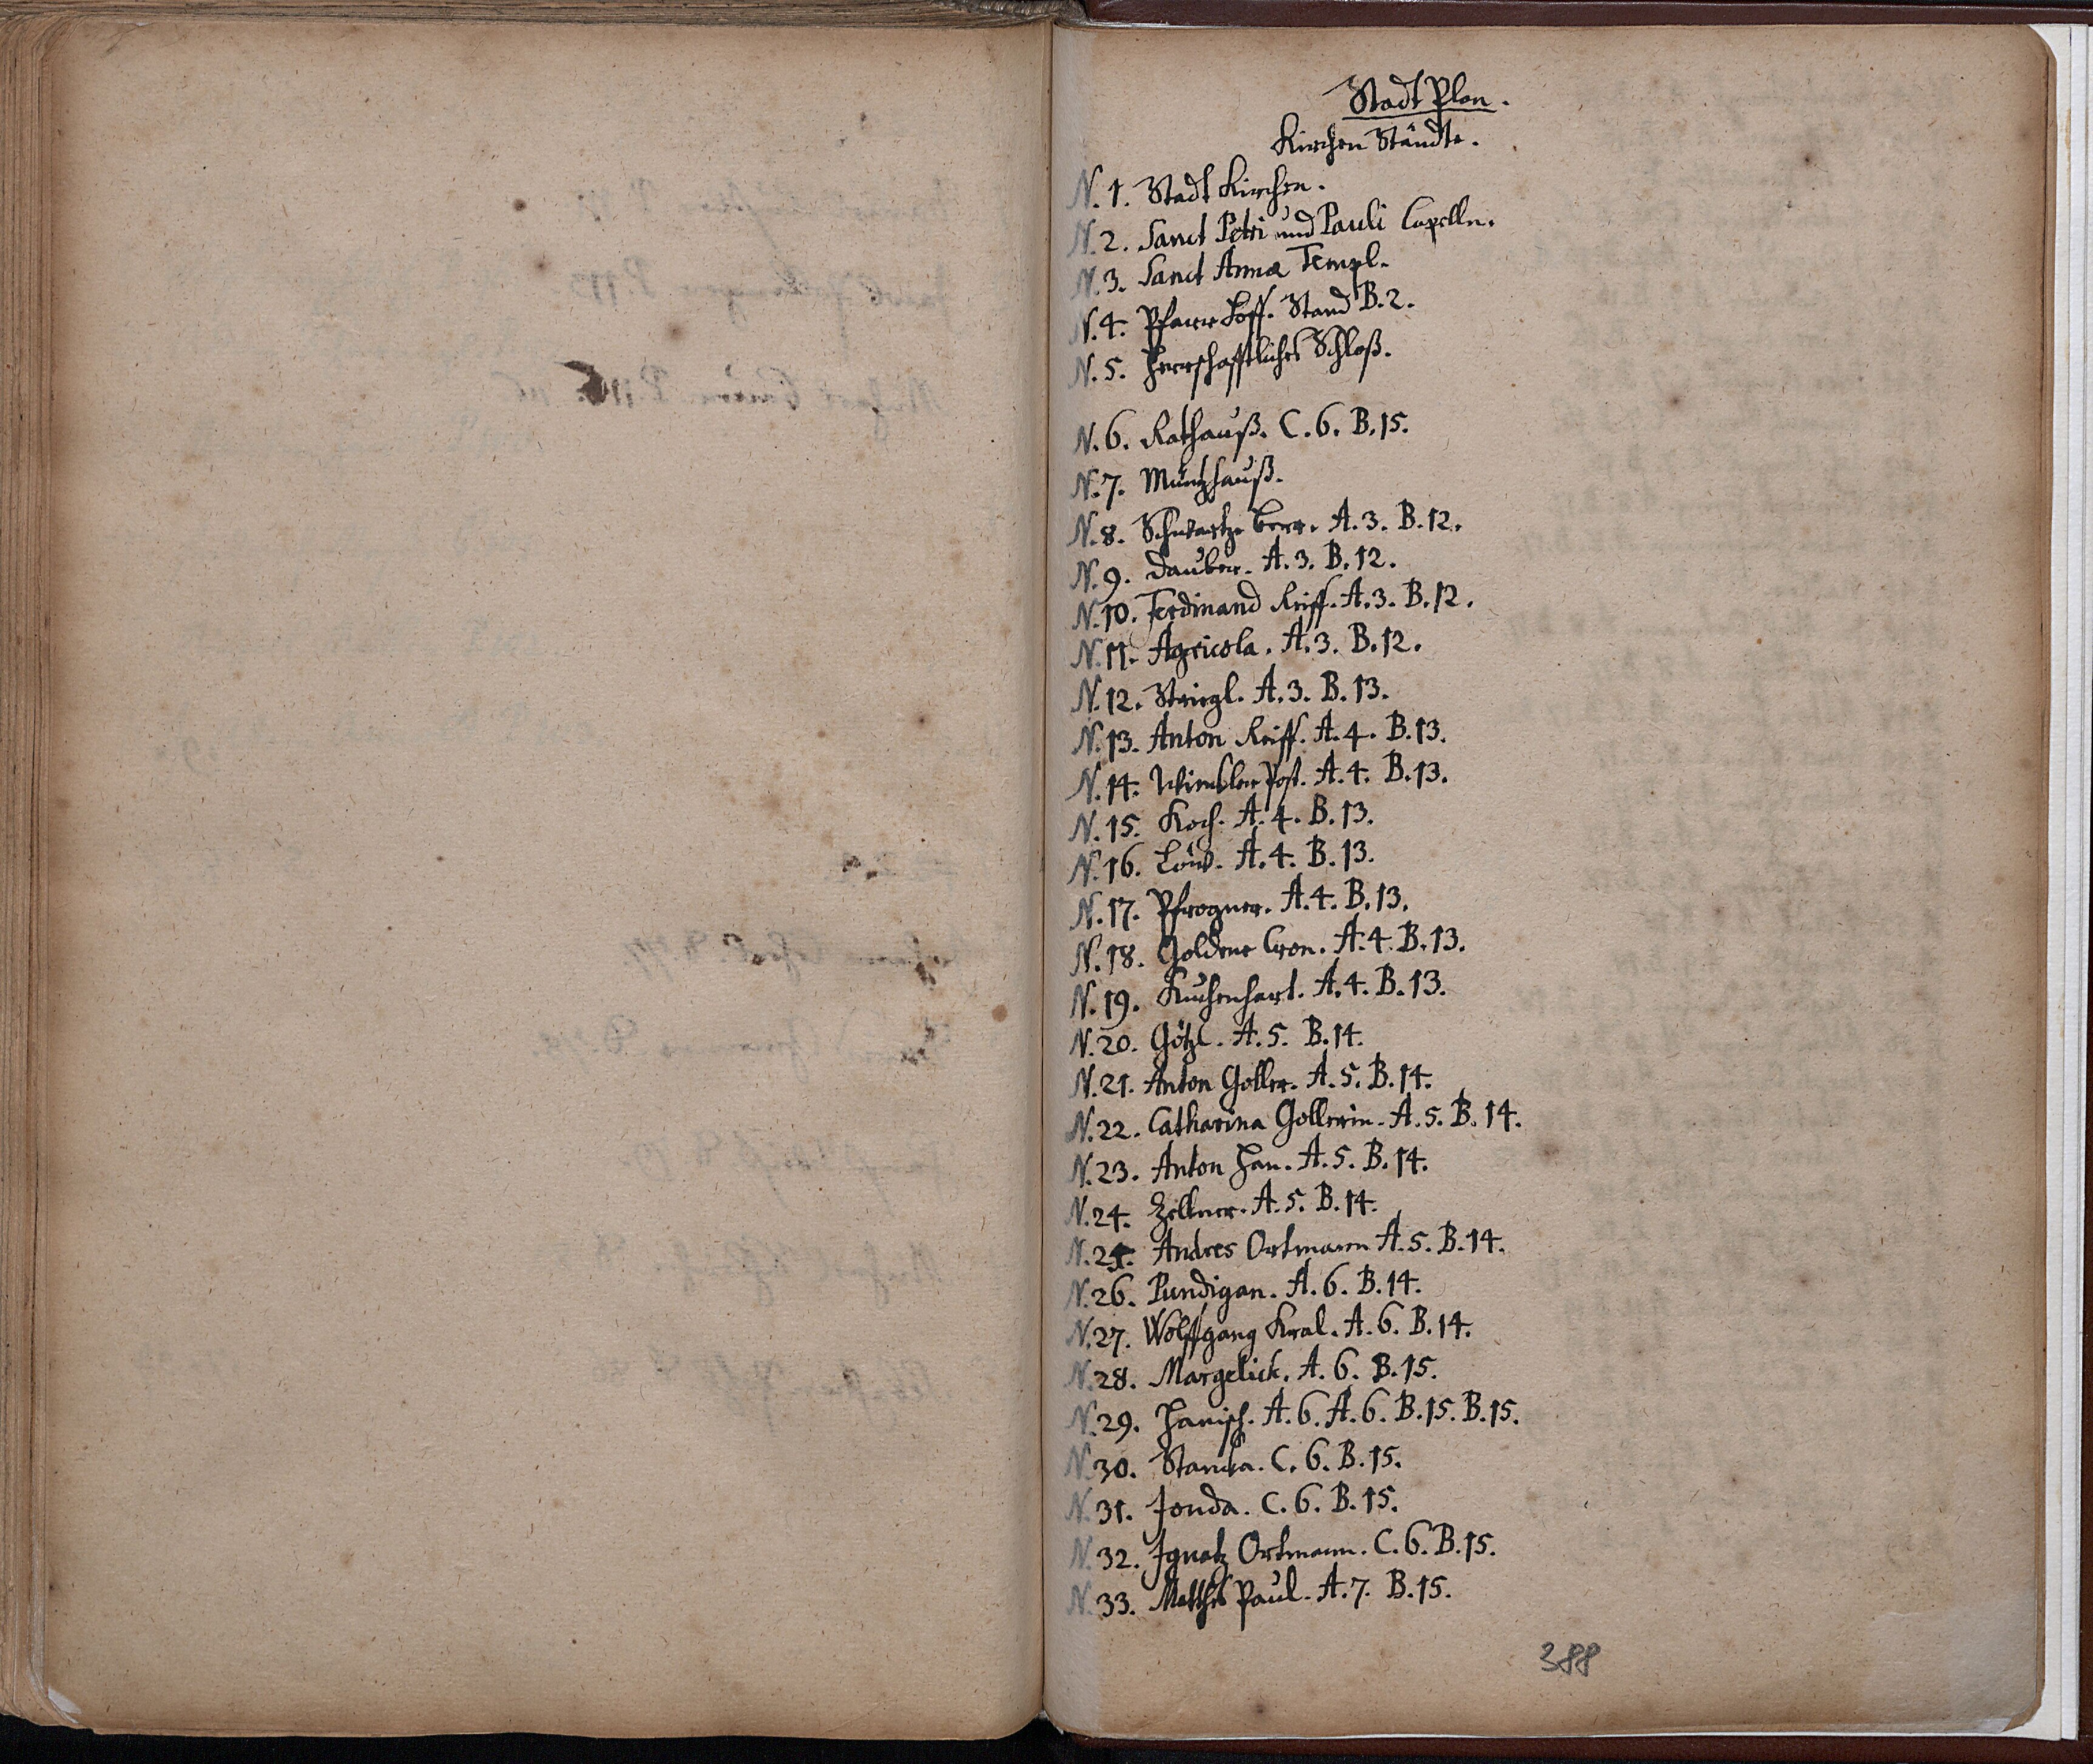 Stadt Plan.
Kirchen Ständte.
N. 1. Stadt Kirchen.
N. 2. Sanct Petri und Pauli Capelln.
N. 3. Sanct Annæ Templ.
N. 4. Pfarr Hoff. Stand B. 2.
N. 5. Herrschafftliches Schloß.
N. 6. Rathauß. C. 6. B. 15.
N. 7. Müntzhauß.
N. 8. Schwartze Beer. A. 3. B. 12.
N. 9. Dauber. A. 3. B. 12.
N. 10. Ferdinand Reiff. A. 3. B. 12.
N. 11. Agricola. A. 3. B. 12.
N. 12. Striegl. A. 3. B. 13.
N. 13. Anton Reiff. A. 4. B. 13.
N. 14. Post. A. 4. B. 13.
N. 15. Koch. A. 4. B. 13.
N. 16. Löw. A. 4. B. 13.
N. 17. Pfrogner. A. 4. B. 13.
N. 18. Goldene Cron. A. 4. B. 13.
N. 19. Kuchenhart. A. 4. B. 13.
N. 20. Götzl. A. 5. B. 14.
N. 21. Anton Goller. A. 5. B. 14.
N. 22. Catharina Gollerin. A. 5. B. 14.
N. 23. Anton Han. A. 5. B. 14.
N. 24. Zellner. A. 5. B. 14.
N. 25. Andres Ortmann A. 5. B. 14.
N. 26. Pundigan. A. 6. B. 14.
N. 27. Wolffgang Kral. A. 6. B. 14.
N. 28. Margelick. A. 6. B. 15.
N. 29. Hanisch. A. 6. A. 6. B. 15. B. 15.
N. 30. Stanka. C. 6. B. 15.
N. 31. Jonda. C. 6. B. 15.
N. 32. Ignatz Ortmann. C. 6. B. 15.
N. 33. Mathes Paul. A. 7. B. 15.
388